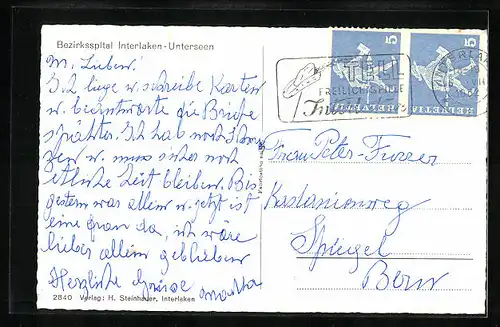 Bezirksspital Interlaken-Unterseen
M. Lieben!
liege u. schreibe Karten
u. beantworte die Briefe
später. Ich hab noch
u. muss sicher noch
etliche Zeit bleiben. Bis
gestern war allein u. jetzt ist
eine Frau da, ich wäre
lieber allein geblieben
Herzliche Grüsse Martha
2840 Verlag: H. Steinhauer, Interlaken
5
5
HELVETIA
HELVETIA
TELL
FREILICHTSPIELE
Interlaken
Frau Peter-Furrer
Kastanienweg
Spiegel
Bern